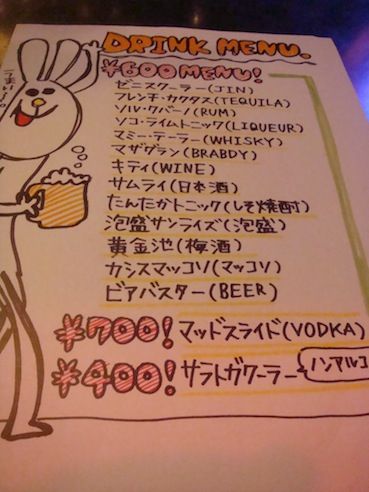 DRINK MENU.
¥600 MENU!
うまい〜♪
ゼニスクーラー(JIN)
フレンチ・カクタス(TEQUILA)
ソル・クバーノ(RUM)
ソコ・ライムトニック(LIQUEUR)
マミー・テーラー(WHISKY)
マザグラン(BRABDY)
キティ(WINE)
サムライ(日本酒)
たんたかトニック(しそ焼酎)
泡盛サンライズ(泡盛)
黄金池(梅酒)
カシスマッコソ(マッコソ)
ビアバスター(BEER)
¥700! マッドスライド(VODKA)
¥400! サラトガクーラー ノンアルコ